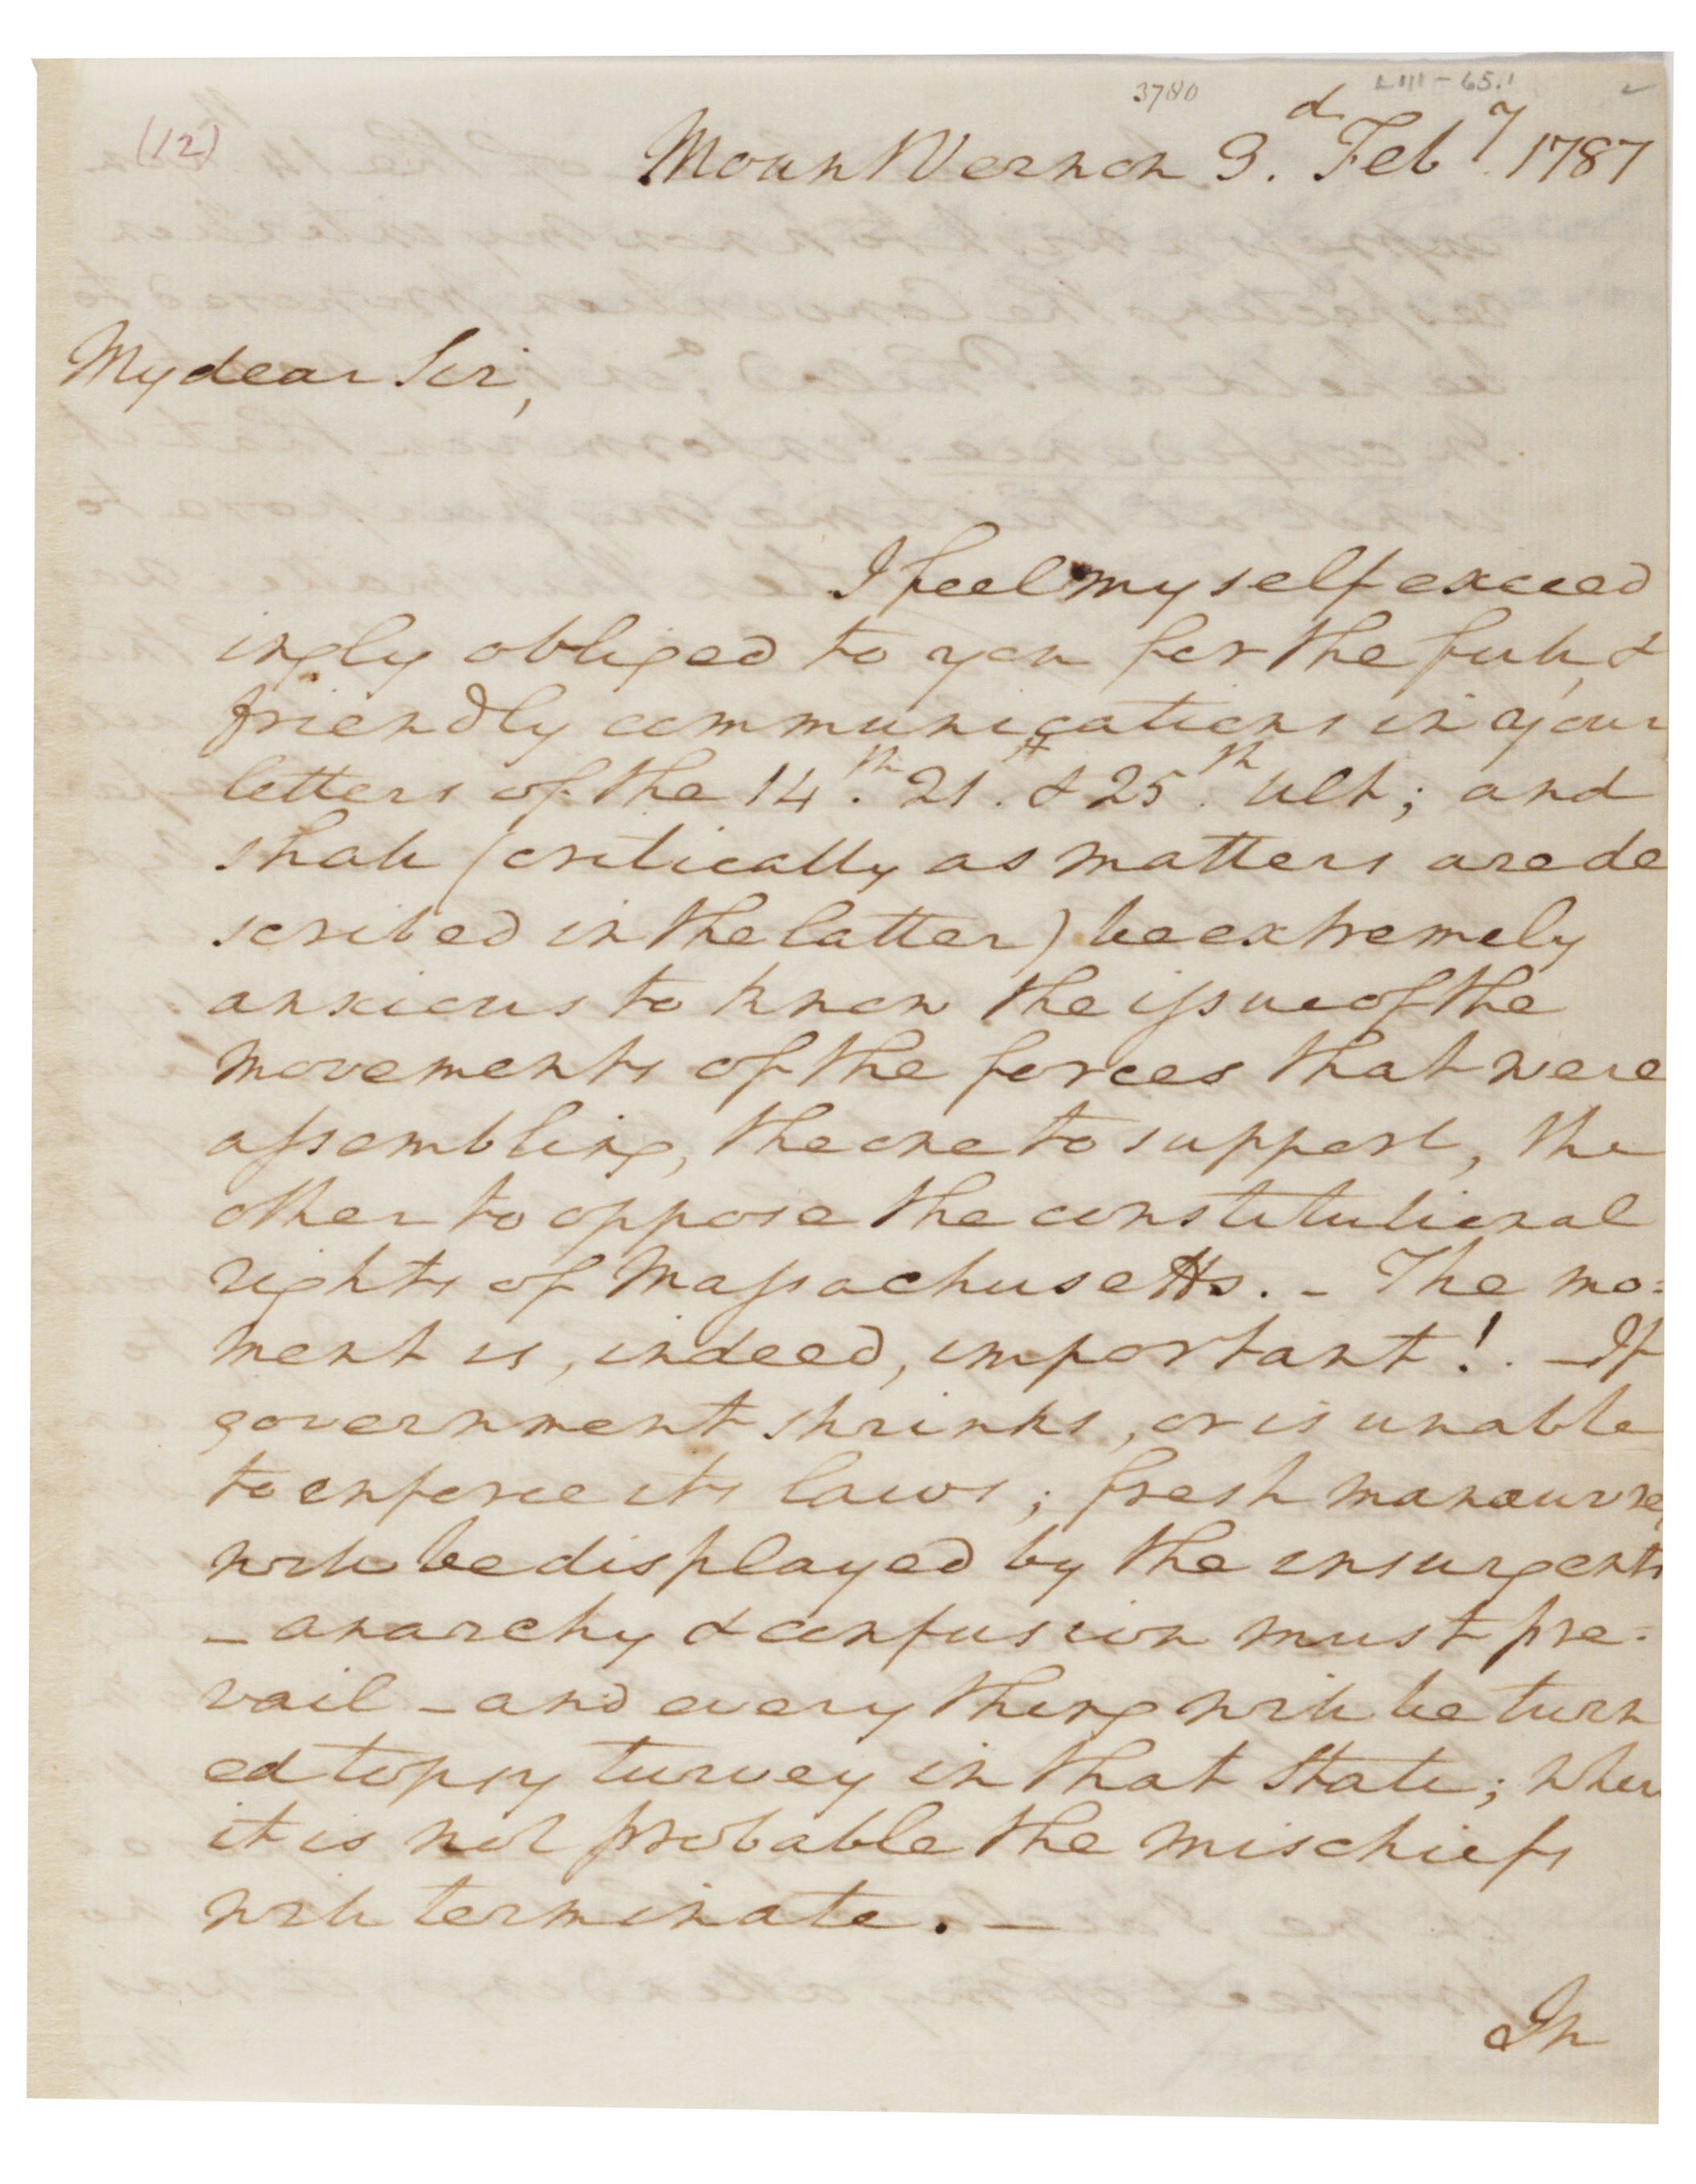 3780
LIII - 65.1
(12)
Mount Vernon 3.d Feby. 1787
My dear Sir,
I feel myself exceed
ingly obliged to you for the full, &
friendly communications in your
letters of the 14.th 21.st & 25.th ult; and
shall (critically as matters are de
scribed in the latter) be extremely
anxious to know the issue of the
movements of the forces that were
assembling, the one to support, the
other to oppose the constitutional
rights of Massachusetts. – The mo=
ment is, indeed, important! – If
government shrinks, or is unable
to enforce its laws; fresh manœuvres
will be displayed by the insurgents
– anarchy & confusion must pre-
vail – and every thing will be turn
ed topsy turvey in that State; where
it is not probable the mischiefs
will terminate. –
In